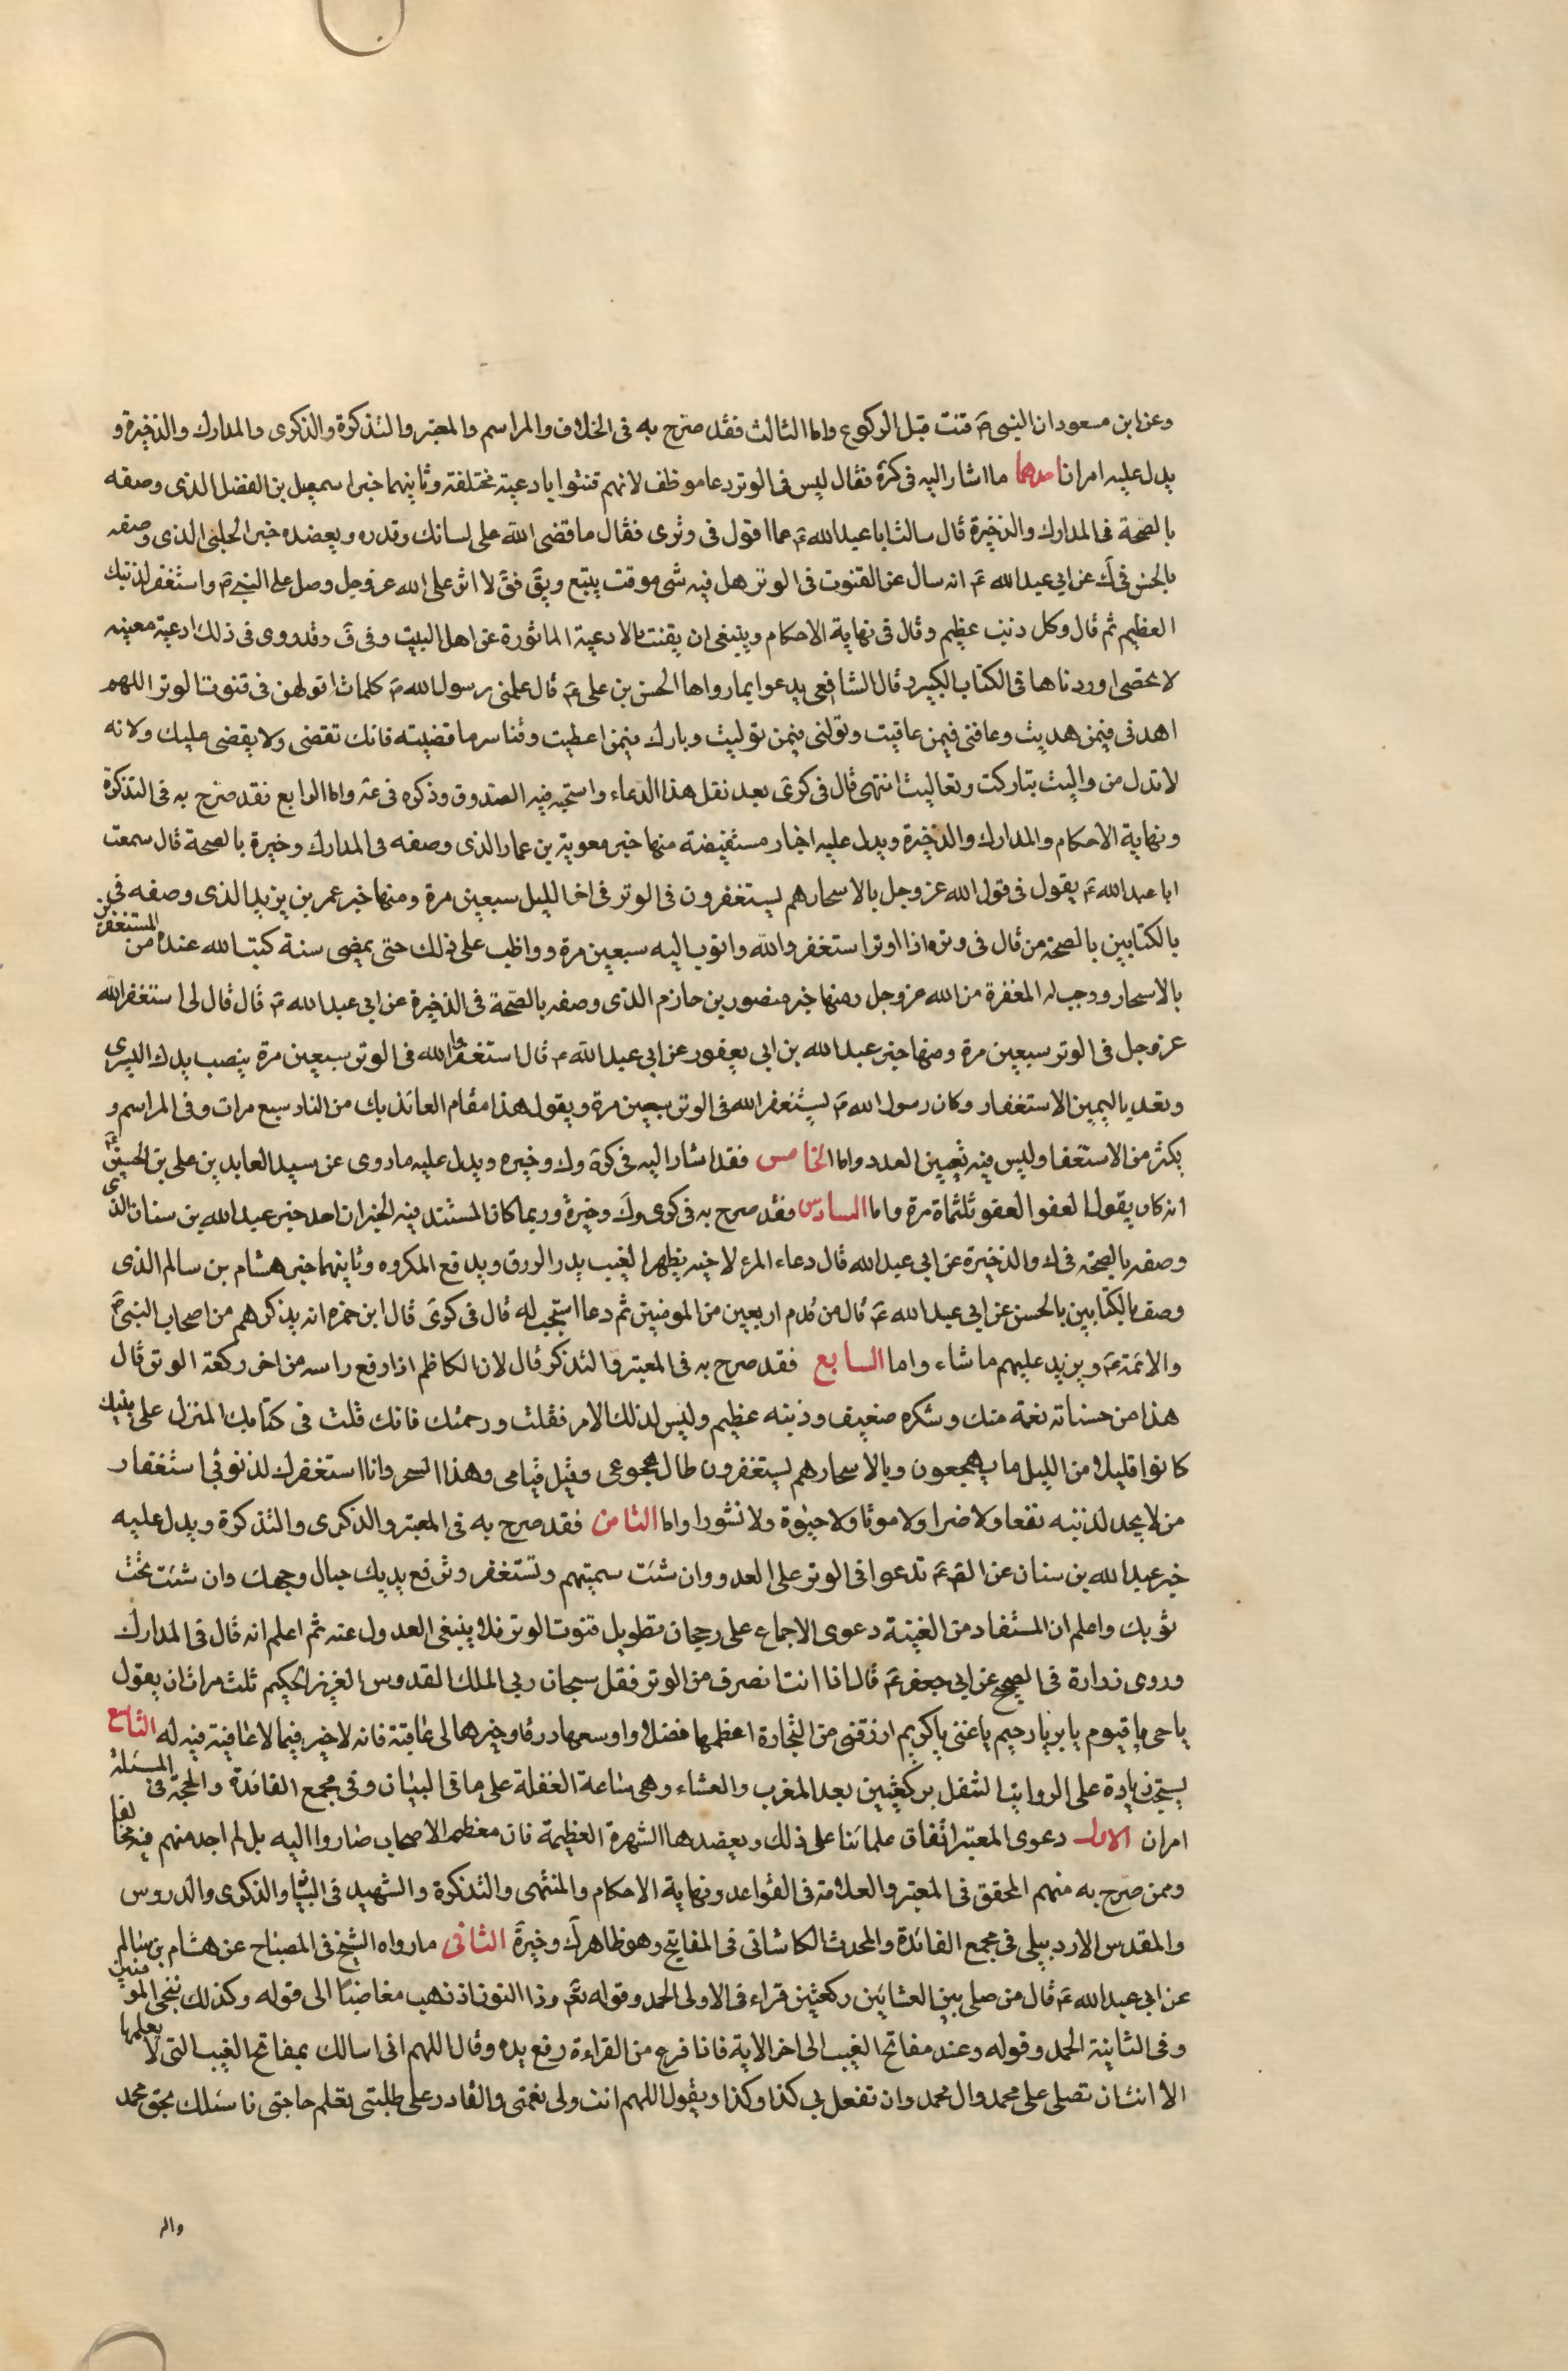 وعن ابن مسعود ان النبي ص قنت قبل الركوع واما الثالث فقد صرّح به في الخلاف والمراسم والمعتبر والتذكرة والذكرى والمدارك والذخيرة و
يدل عليه امران احدهما ما اشار اليه في كرة فقال ليس في الوتر دعا موظف لانهم قنتوا بادعية مختلفة وثانيهما خبر اسمعيل بن الفضل الذى وصفه
بالصّحة في المدارك والذخيرة قال سالت ابا عبد الله ع عما اقول في وترى فقال ما قضى الله على لسانك وقدره ويعضده خبر الحلبي الذى وصفه
بالحسن في ك عن ابي عبد الله ع انه سال عن القنوت في الوتر هل فيه شى موقت يتبع ويق فق لا اثن على الله عز وجل وصل على النبي ص واستغفر لذنبك
العظيم ثم قال وكل ذنب عظيم وقال في نهاية الاحكام وينبغى ان يقنت بالادعية الماثورة عن اهل البيت وفى ق وقد روى في ذلك ادعية معينه
لا تحصى اوردناها في الكتاب الكبير وقال الشافعى يدعوا بما رواها الحسن بن على ع قال علمنى رسول الله ص كلمات اقولهن في قنوت الوتر اللهم
اهدنى فيمن هديت وعافنى فيمن عافيت وتولنى فيمن توليت وبارك فيمن اعطيت وقنا سر ما قضيته فانك تقضى ولا يقضى عليك ولانه
لا تذل من واليت تباركت وتعاليت انتهى قال في كرى بعد نقل هذا الدعاء واستحبه فيه الصدوق وذكره في عه واما الرابع فقد صرّح به في التذكرة
ونهاية الاحكام والمدارك والذخيرة ويدل عليه اخبار مستفيضة منها خبر معوية بن عمار الذى وصفه في المدارك وخيرة بالصحة قال سمعت
ابا عبد الله ع يقول في قول الله عز وجل بالاسحار هم يستغفرون في الوتر في اخر الليل سبعين مرة ومنها خبر عمر بن يزيد الذى وصفه في
بالكتابين بالصحة من قال في وتره اذا اوتر استغفر والله واتوب اليه سبعين مرة وواظب على ذلك حتى يمضى سنة كتب الله عنده من المستغفرين
بالاسحار ووجب له المغفرة من الله عز وجل ومنها خبر منصور بن حازم الذى وصفه بالصّحة في الذخيرة عن ابي عبد الله ع قال قال لى استغفر الله
عز وجل في الوتر سبعين مرة ومنها خبر عبد الله بن ابي يعفور عن ابي عبد الله ع قال استغفر الله في الوتر سبعين مرة ينصب يدك اليسرى
وتعد باليمين الاستغفار وكان رسول الله ص يستغفر الله في الوتر سبعين مرة ويقول هذا مقام العائذ بك من النار سبع مرات وفى المراسم و
يكثر من الاستغفا وليس فيه تعيين العدد واما الخامس فقد اشار اليه في كرة وك وخيره ويدل عليه ما روى عن سيد العابدين على بن الحسين ع
انه كان يقول العفو العفو ثلثماة مرة واما السادس فقد صرح به في كرى وك وخيرة وربما كان المستند فيه الخبران احد خبر عبد الله بن سنان الذى
وصفه بالصحة في ك والذخيرة عن ابي عبد الله قال دعاء المرء لاخيه بظهر الغيب يدر الرزق ويدفع المكروه وثانيهما خبر هشام بن سالم الذى
وصف بالكتابين بالحسن عن ابي عبد الله ع قال من قدم اربعين من المومنين ثم دعا استجب له قال في كرى قال ابن حمزه انه يذكرهم من اصحاب النبي ص
والائمة ع ويزيد عليهم ما شاء واما السابع فقد صرح به في المعتبر والتذكر قال لان الكاظم اذا رفع راسه من اخر ركعة الوتر قال
هذا من حسناته نعمة منك وشكره ضعيف وذنبه عظيم وليس لذلك الامر فقلت ورحمتك فانك قلت في كتابك المنزل على نبيك
كانوا قليلا من الليل ما يهجعون وبالاسحار هم يستغفرون طال هجوعى وقيل قيامى وهذا السحر وانا استغفرك لذنوبي استغفار
من لا يجد لذنبه نفعا ولا ضرا ولا موتا ولا حيٰوة ولا نشورا واما الثامن فقد صرح به في المعتبر والذكرى والتذكرة ويدل عليه
خبر عبد الله بن سنان عن الص ع تدعوا في الوتر على العدو وان شئت سميتهم وتستغفر وترفع يديك حيال وجهك وان شئت تحت
ثوبك واعلم ان المستفاد من الغنية دعوى الاجماع على رجحان تطويل قنوت الوتر فلا ينبغى العدول عنه ثم اعلم انه قال في المدارك
وروى زرارة في الصحيح عن ابي جعفر ع قال اذا انت انصرف من الوتر فقل سبحان ربي الملك القدوس العزيز الحكيم ثلث مرات ان يقول
يا حى يا قيوم يا بر يا رحيم يا غنى يا كريم ارزقنى من التجارة اعظمها فضلا واوسعها درقا وخيرها لى عٰاقبة فانه لا خير فيما لا عٰاقبة فيه له التاسع
يستحب زيادة على الرواتب التنفل بركعتين بعد المغرب والعشاء وهى ساعة الغفلة على ما في البيٰان وفي مجمع الفائدة والحجة في المسئلة
امران الاول دعوى المعتبر اتفاق علمائنا على ذلك ويعضدها الشهرة العظيمة فان معظم الاصحاب صاروا اليه بل لم اجد منهم فيه مخالفا
وممن صرح به منهم المحقق في المعتبر والعلامة في القواعد ونهاية الاحكام والمنتهى والتذكرة والشهيد في البيٰان والذكرى والدروس
والمقدس الاردبيلى في مجمع الفائدة والمحدث الكاشاني في المفاتيح وهو ظاهر ك وخيرة الثانى ما رواه الشيخ في المصباح عن هشام بن سالم
عن ابي عبد الله ع قال من صلى بين العشائين ركعتين قراء في الاولى الحمد وقوله تع وذا النون اذ ذهب مغاضبا الى قوله وكذلك ننجى المومنين
وفى الثانية الحمد وقوله وعند مفاتح الغيب الى اخر الاية فاذا فرع من القراءة رفع يده وقال اللهم انى اسالك بمفاتح الغيب التى لا يعلمها
الا انت ان تصلى على محمد وال محمد وان تفعل بي كذا وكذا ويقول اللهم انت ولى نعمتى والقادر على طلبتى تعلم حاجتى فاسئلك بحق محمد
وال